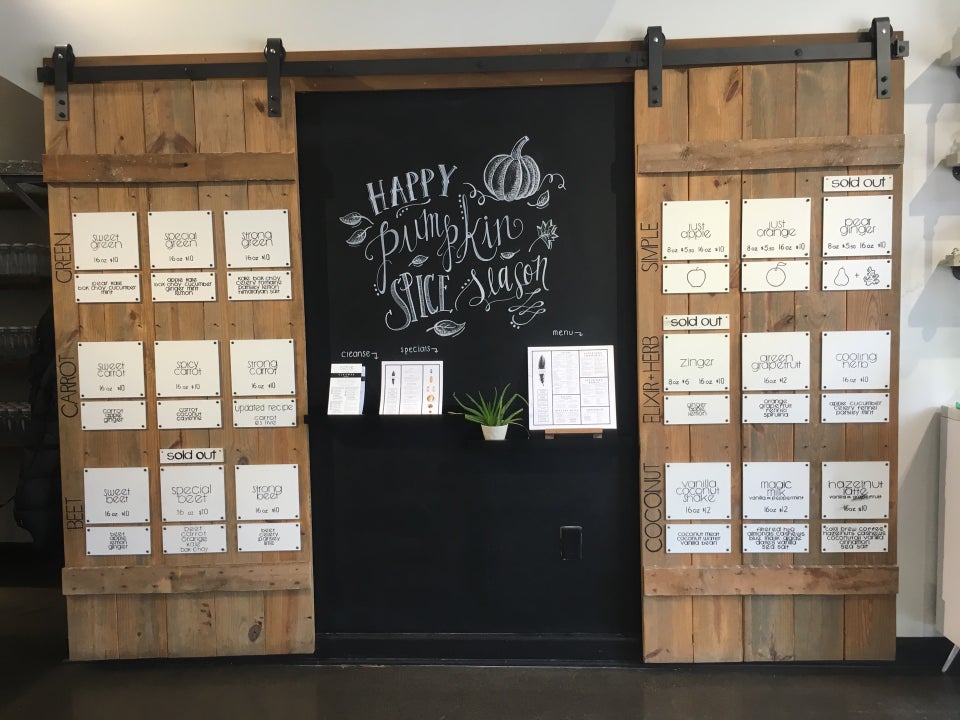 GREEN
sweet
green
16 oz $10
pear kale
bok choy cucumber
mint
special
green
16 oz $10
apple kale
bok choy cucumber
ginger mint
lemon
strong
green
16 oz $10
kale bok choy
celery romaine
parsley lemon
himalayan salt
CARROT
sweet
carrot
16 oz $10
carrot
apple
ginger
spicy
carrot
16 oz $10
carrot
coconut
cayenne
strong
carrot
16 oz $10
updated recipe
carrot
BEET
sweet
beet
16 oz $10
beet
apple
lemon
ginger
sold out
special
beet
16 oz $10
beet
carrot
orange
kale
bok choy
strong
beet
16 oz $10
beet
celery
parsley
lime
HAPPY
pumpkin
SPICE season
cleanse
specials
menu
SIMPLE
just
apple
8 oz $5.50 16 oz $10
just
orange
8 oz $5.50 16 oz $10
sold out
pear
ginger
8 oz $5.50 16 oz $10
+
ELIXIR+HERB
sold out
zinger
8 oz $6 16 oz $10
ginger
apple
lemon
green
grapefruit
16 oz $12
orange
grapefruit
fennel
spirulina
cooling
herb
16 oz $10
apple cucumber
celery fennel
parsley mint
COCONUT
vanilla
coconut
shake
16 oz $12
coconut meat
coconut water
vanilla bean
magic
milk
vanilla or peppermint
16 oz $12
filtered h2o
almonds cashews
blue majik algae
dates vanilla
sea salt
hazelnut
latte
16 oz $12
cold brew coffee
hazelnuts cashews
coconut oil vanilla
cinnamon
sea salt